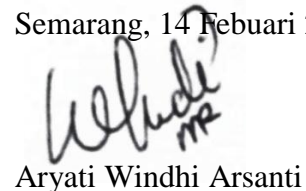 Semarang, 14 Febuari
Aryati Windhi Arsanti